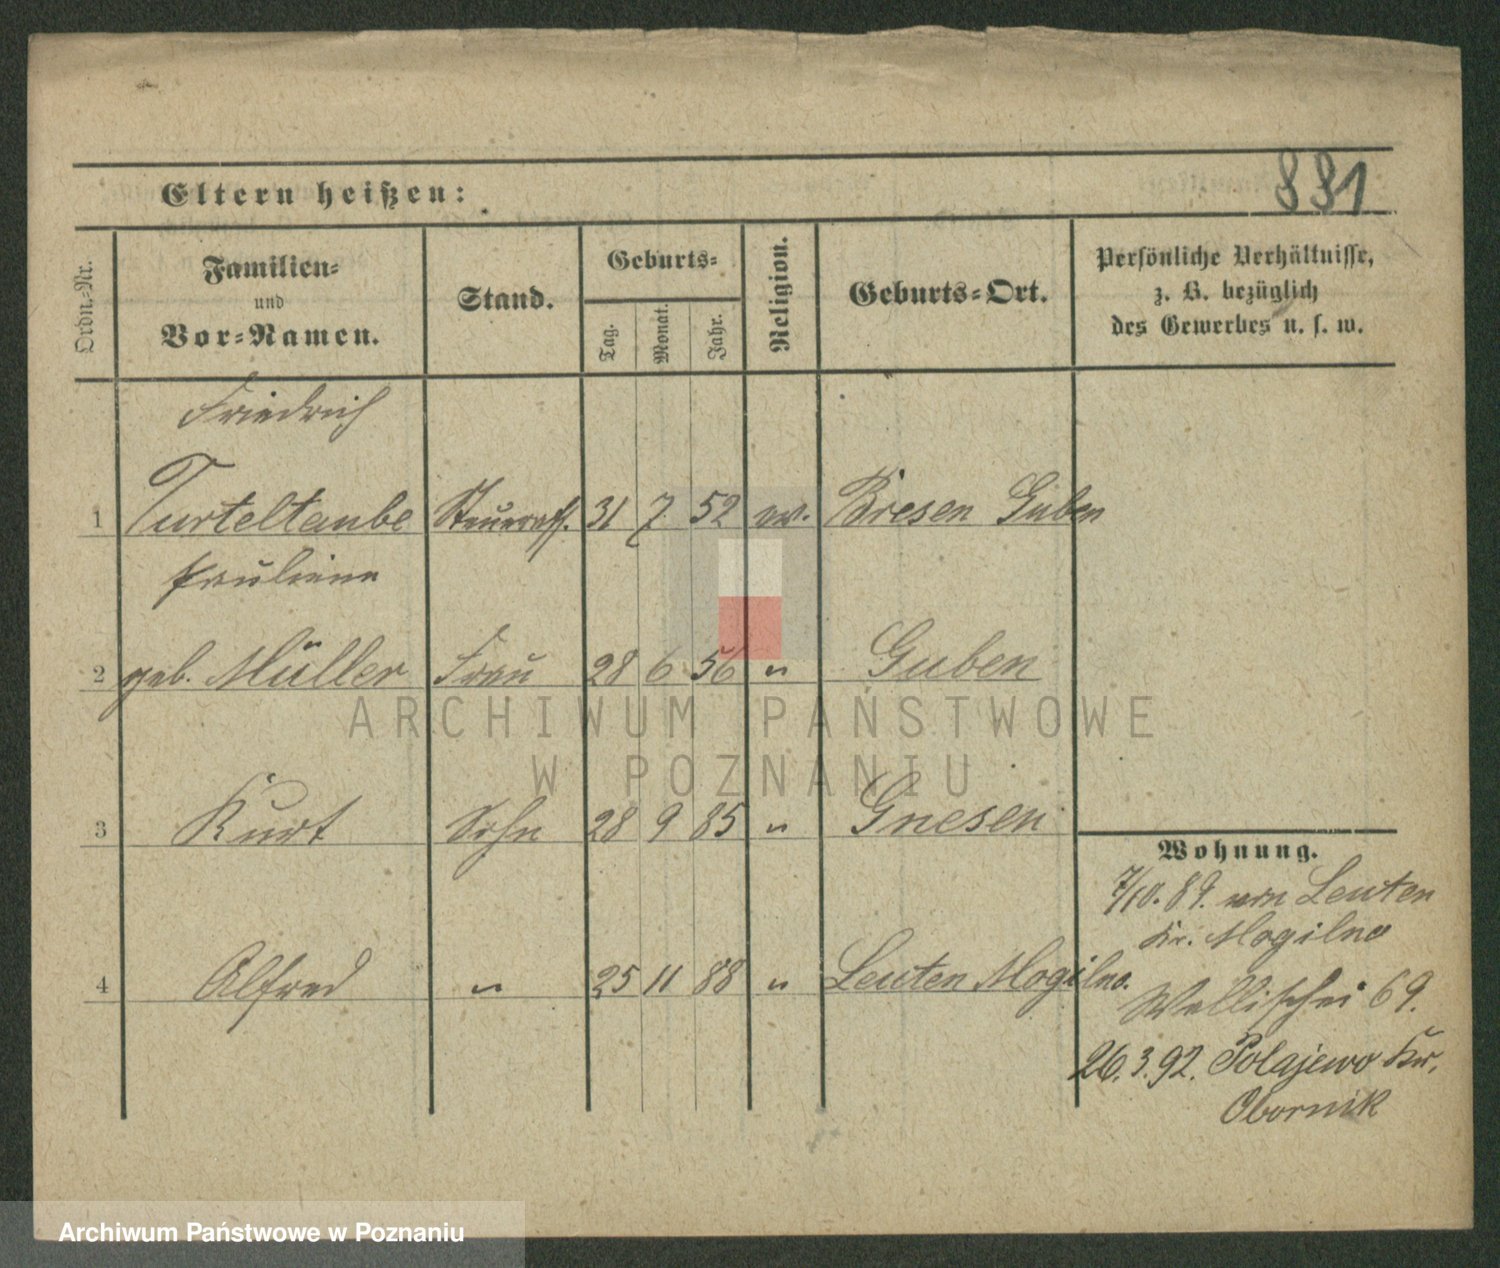 881
Eltern heißen:
Ordn.-Nr.
Familien-
und
Vor-Namen.
Stand.
Geburts-
Tag.
Monat.
Jahr.
Religion.
Geburts-Ort.
Persönliche Verhältnisse,
z. B. bezüglich
des Gewerbes u. s. w.
Friedrich
1 Turteltaube Steueraff. 31 7 52 ev. Bresen Guben
Pauliene
2 geb. Müller Frau 28 6 56 " Guben
ARCHIWUM PAŃSTWOWE
W POZNANIU
3 Kurt Sohn 28 9 85 " Gnesen
4 Alfred " 25 11 88 " Leuten Mogilno.
Wohnung.
7/10. 89. von Leuten
Kr. Mogilno
Wallischei 69.
26.3.92. Polajewo Kr.
Obornik
Archiwum Państwowe w Poznaniu